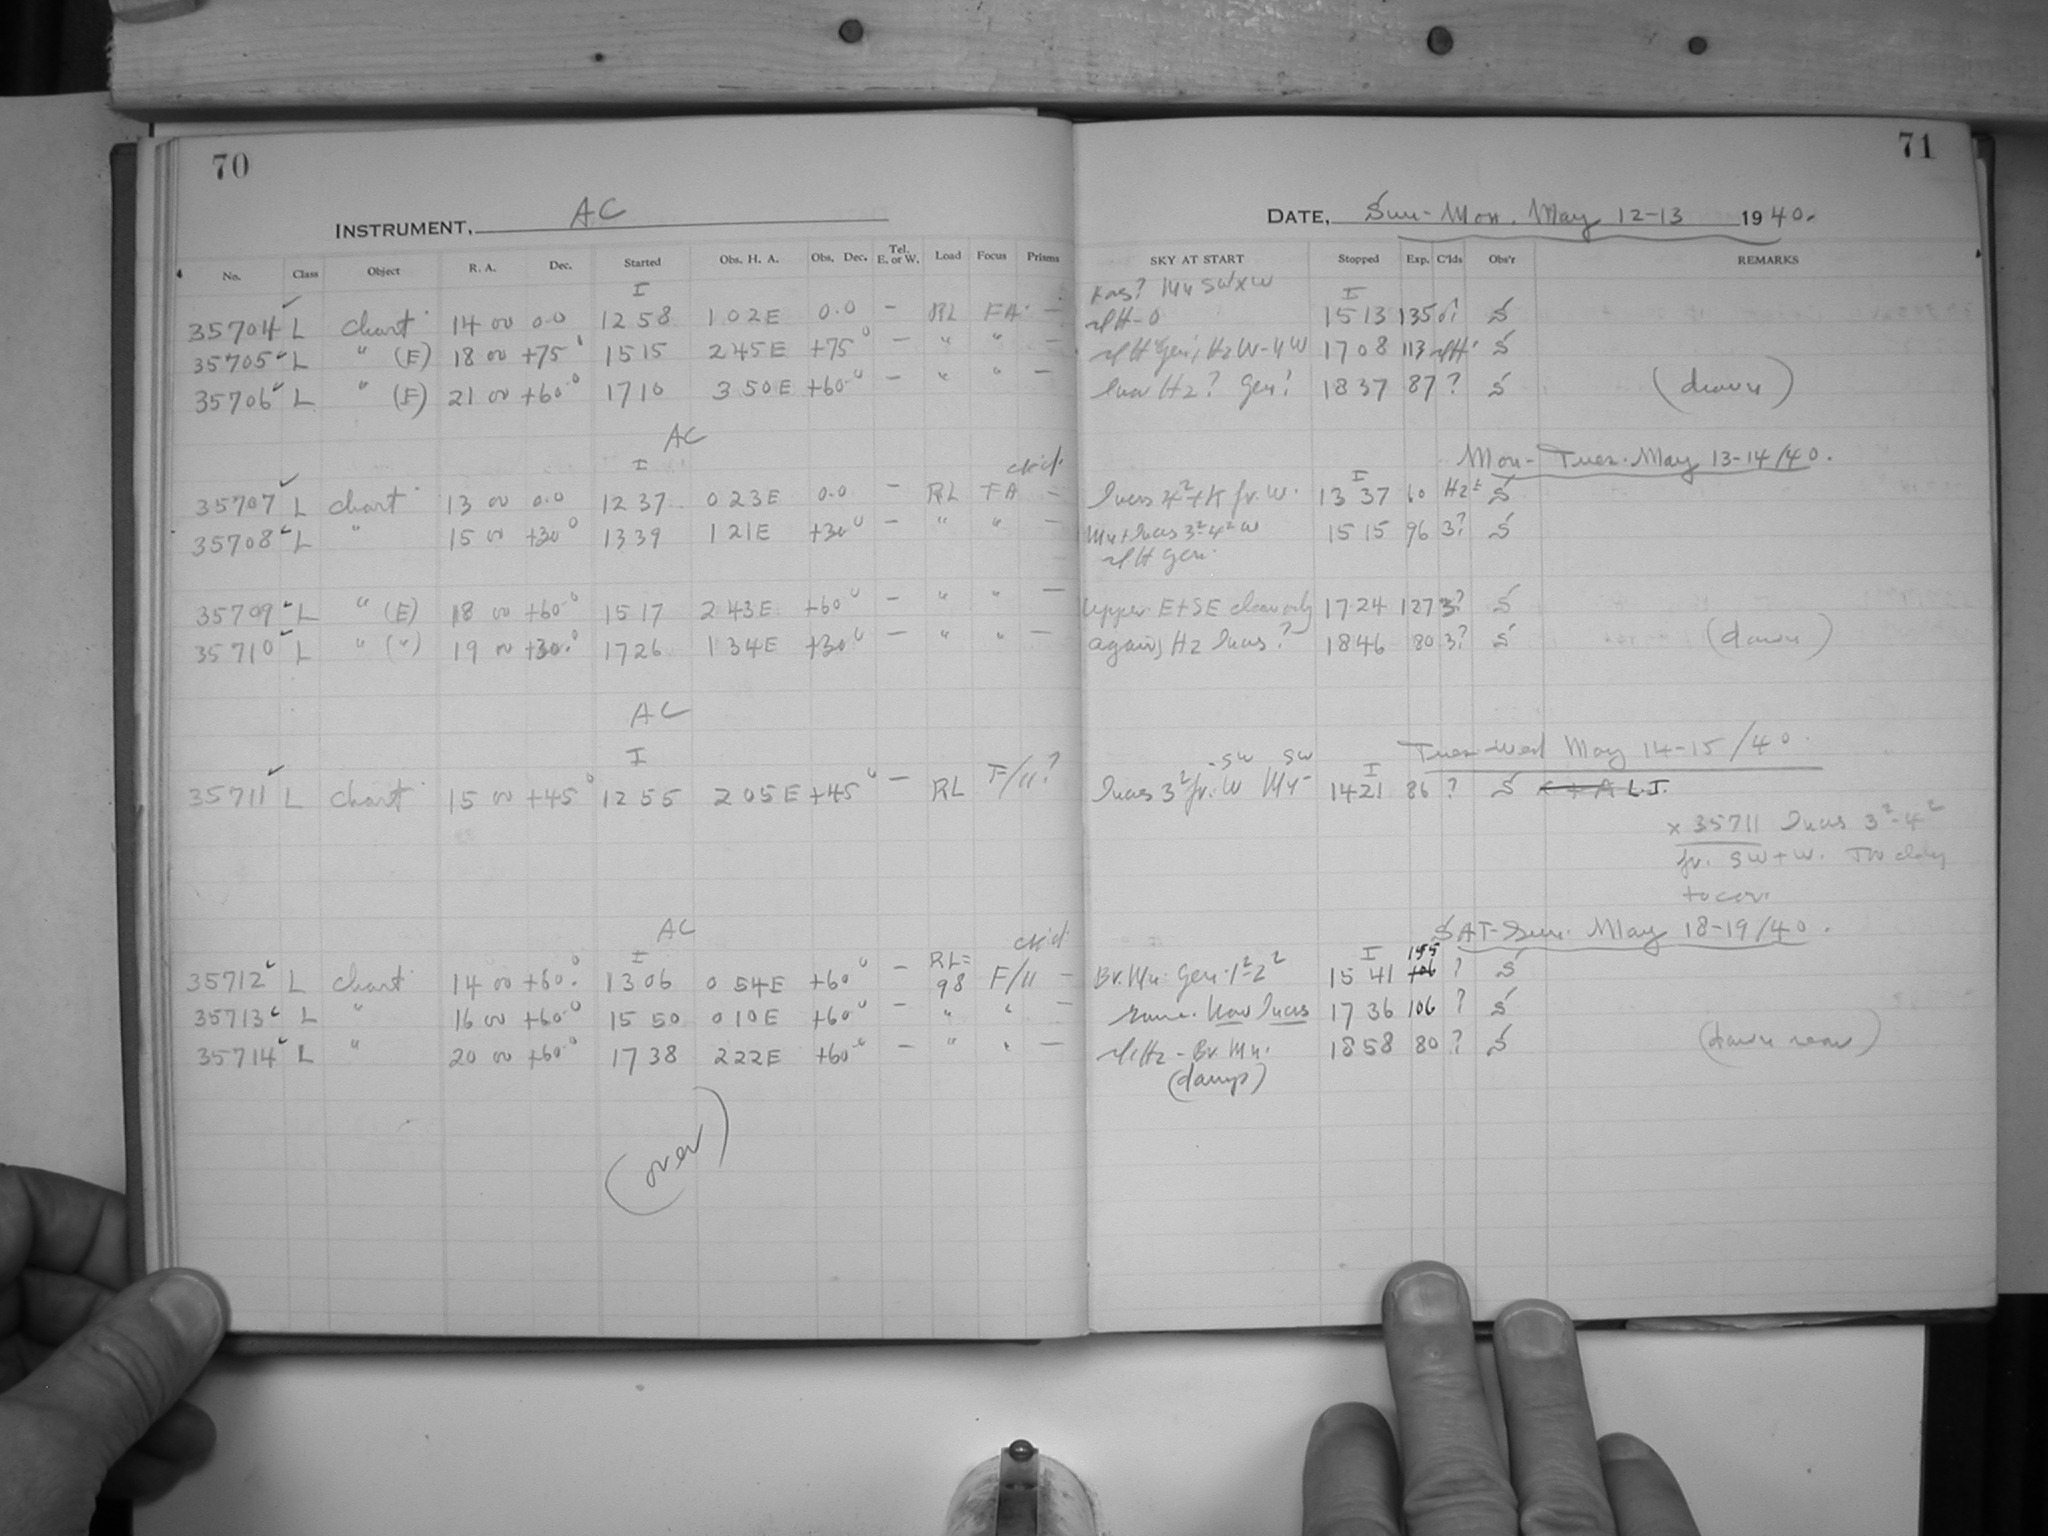 70
71
INSTRUMENT, AC
DATE, Sun-Mon. May 12-13 1940.
No. Class Object R. A. Dec. Started Obs. H. A. Obs. Dec. Tel. E. or W. Load Focus Prisms SKY AT START Stopped Exp. C'lds Obs'r REMARKS
I I
35704 L chart 14 00 0.0 1258 102E 0.0 - RL FA - 1513 135 S
35705 L " (E) 18 00 +75° 1515 245E +75° - " " - 1708 113 S
35706 L " (E) 21 00 +60° 1710 350E +60° - " " - Hz? Gen? 1837 87 ? S (dawn)
AC
Mon- Tues. May 13-14/40.
I ck'd. I
35707 L chart 13 00 0.0 1237 023E 0.0 - RL FA - 1337 60 Hz S
35708 L " 15 00 +30° 1339 121E +30° - " " - 1515 96 3? S
Gen.
35709 L " (E) 18 00 +60° 1517 243E +60° - " " - Upper E+SE clear only 1724 127 3? S
35710 L " (") 19 00 +30° 1726 134E +30° - " " - again, Hz ? 1846 80 3? S (dawn)
AC
Tues-Wed May 14-15/40.
I SW SW I
35711 L chart 15 00 +45° 1255 205E +45° - RL F/11? 3² fr. W 1421 86 ? S L.I.
x 35711 3²-4²
fr. SW+W.
to cor.
AC
SAT-Sun. May 18-19/40.
I ck'd I 155
35712 L chart 14 00 +60° 1306 054E +60° - RL= 98 F/11 - Br. Mn. Gen. 1²-2² 1541 106 ? S
35713 L " 16 00 +60° 1550 010E +60° - " " - same. 1736 106 ? S
35714 L " 20 00 +60° 1738 222E +60° - " " - Hz - Br. Mn. 1858 80 ? S (dawn near)
(damp)
(over)